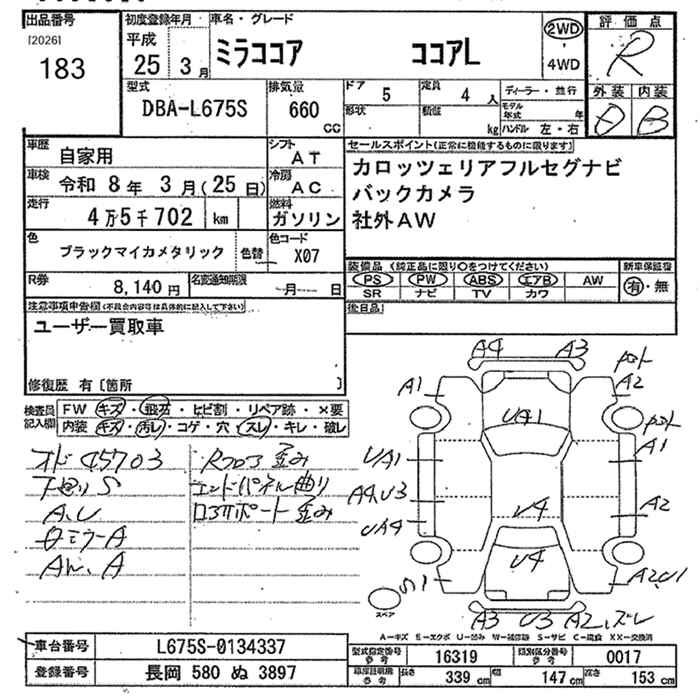 出品番号
[2026]
183
初度登録年月
平成
25 3月
車名・グレード
ミラココア ココアL
2WD
4WD
評価点
R
外装 内装
D B
型式
DBA-L675S
排気量
660
CC
ドア
5
形状
定員
4 人
積載
kg
ディーラー・並行
モデル年式 年
ハンドル 左・右
車歴
自家用
シフト
AT
車検
令和 8年 3月(25日)
冷房
AC
走行
4万5千702 km
燃料
ガソリン
色
ブラックマイカメタリック
色替
色コード
X07
R券
8,140円
名変通知期限
月 日
セールスポイント(正常に機能するものに限ります)
カロッツェリアフルセグナビ
バックカメラ
社外AW
装備品 (純正品に限り○をつけてください)
PS PW ABS エアB AW
SR ナビ TV カワ
新車保証書
有・無
後日品
注意事項申告欄(不具合内容等は具体的に記入して下さい)
ユーザー買取車
修復歴 有〔箇所 〕
検査員記入欄
FW キズ・飛石・ヒビ割・リペア跡・×要
内装 キズ・汚レ・コゲ・穴・スレ・キレ・破レ
オド 45703
下廻りS
A、U
Rフロア歪み
エンドパネル曲り
A4 A3
A1 A2
UA1
UA1 A1
A4,U3 A2
U4
UA4
U4
S1 A2U1
A3 U3 A2,ズレ
スペア
A-キズ E-エクボ U-凹み W-補修跡 S-サビ C-腐食 XX-交換済
車台番号
L675S-0134337
登録番号
長岡 580 ぬ 3897
型式指定番号
参考
16319
類別区分番号
参考
0017
車庫証明用
参考
長さ 339cm
幅 147cm
高さ 153cm